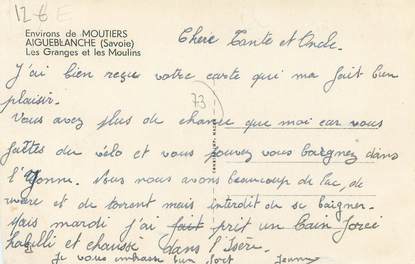 12-6 E
Environs de MOUTIERS
AIGUEBLANCHE (Savoie)
Les Granges et les Moulins
73
Chere Tante et Oncle.
J'ai bien reçue votre carte qui ma fait bien
plaisir.
Vous avez plus de chance que moi car vous
faites du vélo et vous pouvez vous baignez dans
l'Yonne. Nous nous avons beaucoup de lac, de
rivière et de torrent mais interdit de se baigner.
Mais mardi j'ai fait prit un bain forcé
habilli et chaussé dans l'Isère.
Je vous embrasse bien fort